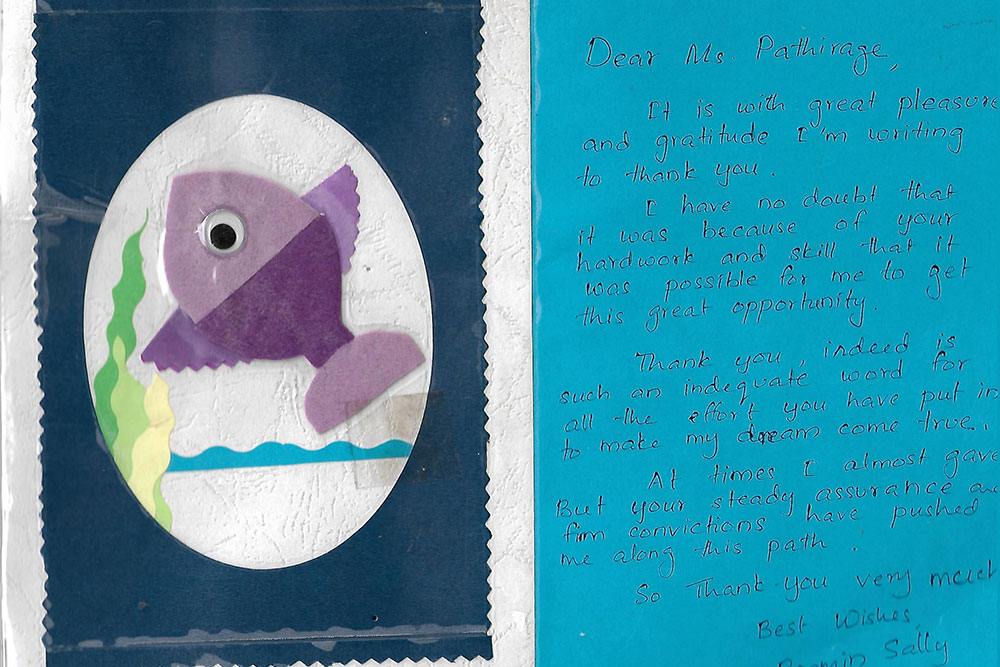 Dear Ms. Pathirage,
It is with great pleasure
and gratitude I'm writing
to thank you.
I have no doubt that
it was because of your
hardwork and skill that it
was possible for me to get
this great opportunity.
Thank you, indeed is
such an indequate word for
all the effort you have put in
to make my dream come true.
At times I almost gave
But your steady assurance
firm convictions have pushed
me along this path.
So Thank you very much
Best Wishes,
Sally